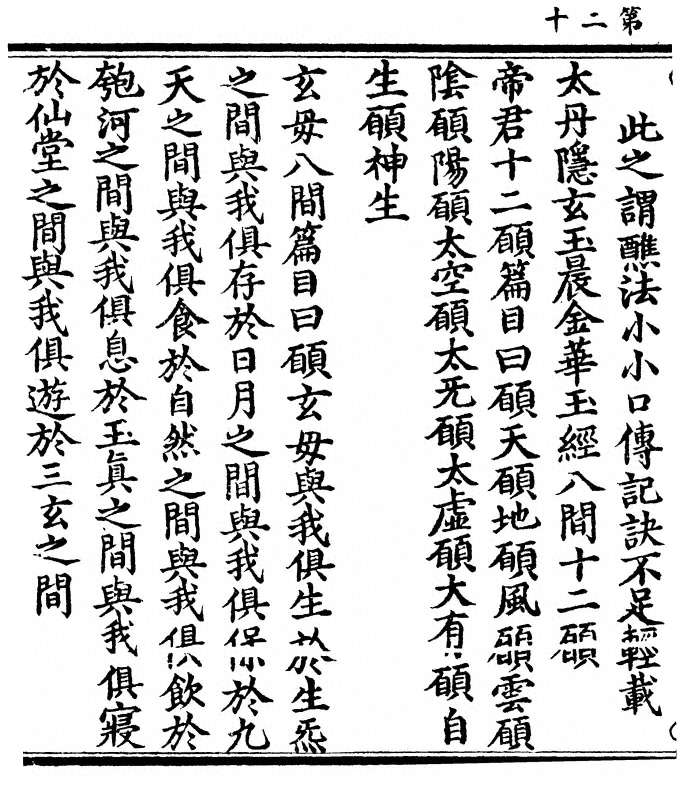 第二十
此之謂醮法小小口傳記訣不足輕載
太丹隱玄玉晨金華玉經八間十二願
帝君十二願篇目曰願天願地願風願雲願
陰願陽願太空願太无願太虛願大有願自
生願神生
玄母八間篇目曰願玄母與我俱生於生炁
之間與我俱存於日月之間與我俱保於九
天之間與我俱食於自然之間與我俱飲於
匏河之間與我俱息於玉真之間與我俱寢
於仙堂之間與我俱遊於三玄之間